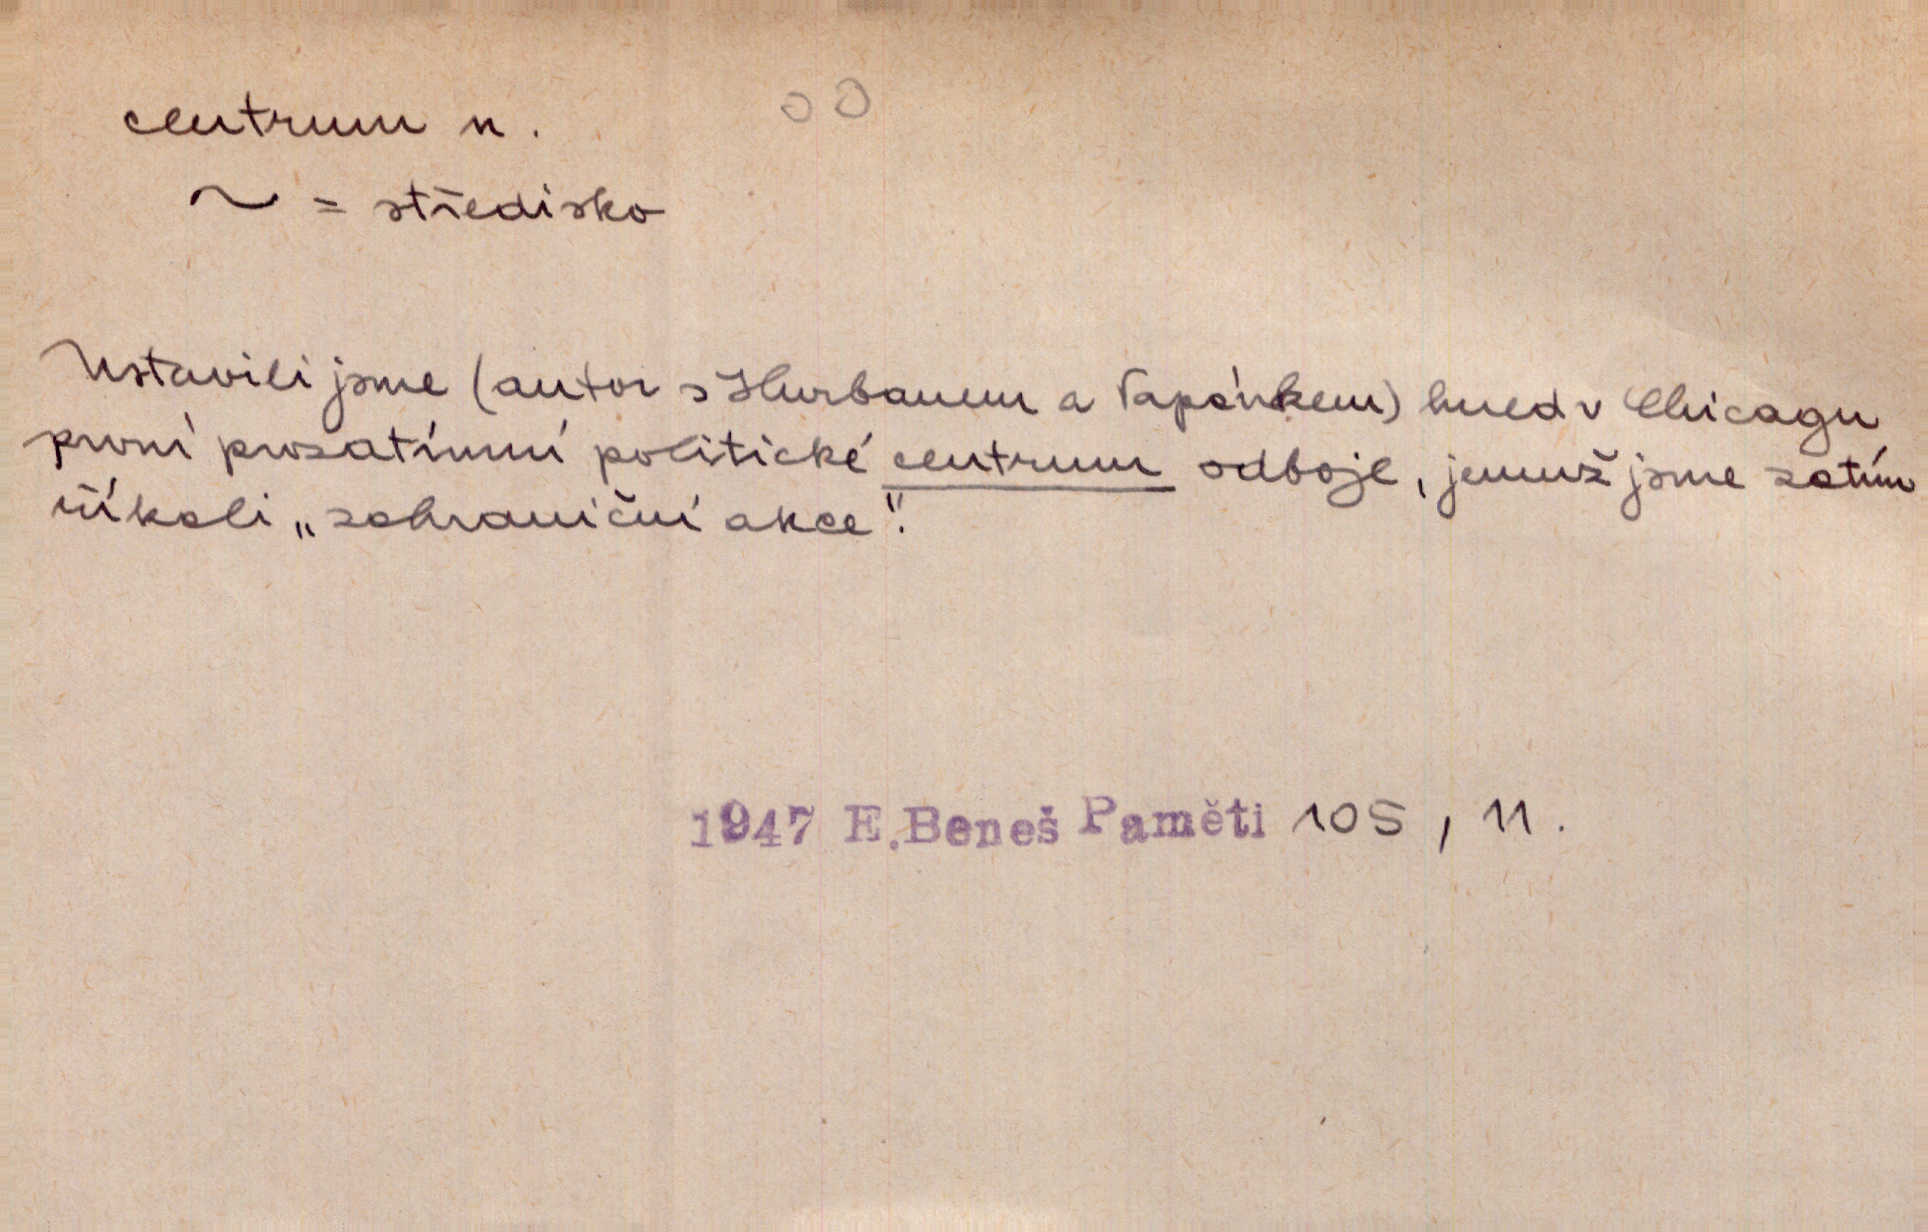 centrum n. 00
~ = středisko
Ustavili jsme (autor s Hurbanem a Papánkem) hned v Chicagu
první prozatímní politické centrum odboje, jemuž jsme zatím
říkali „zahraniční akce".
1947 E. Beneš Paměti 105, 11.